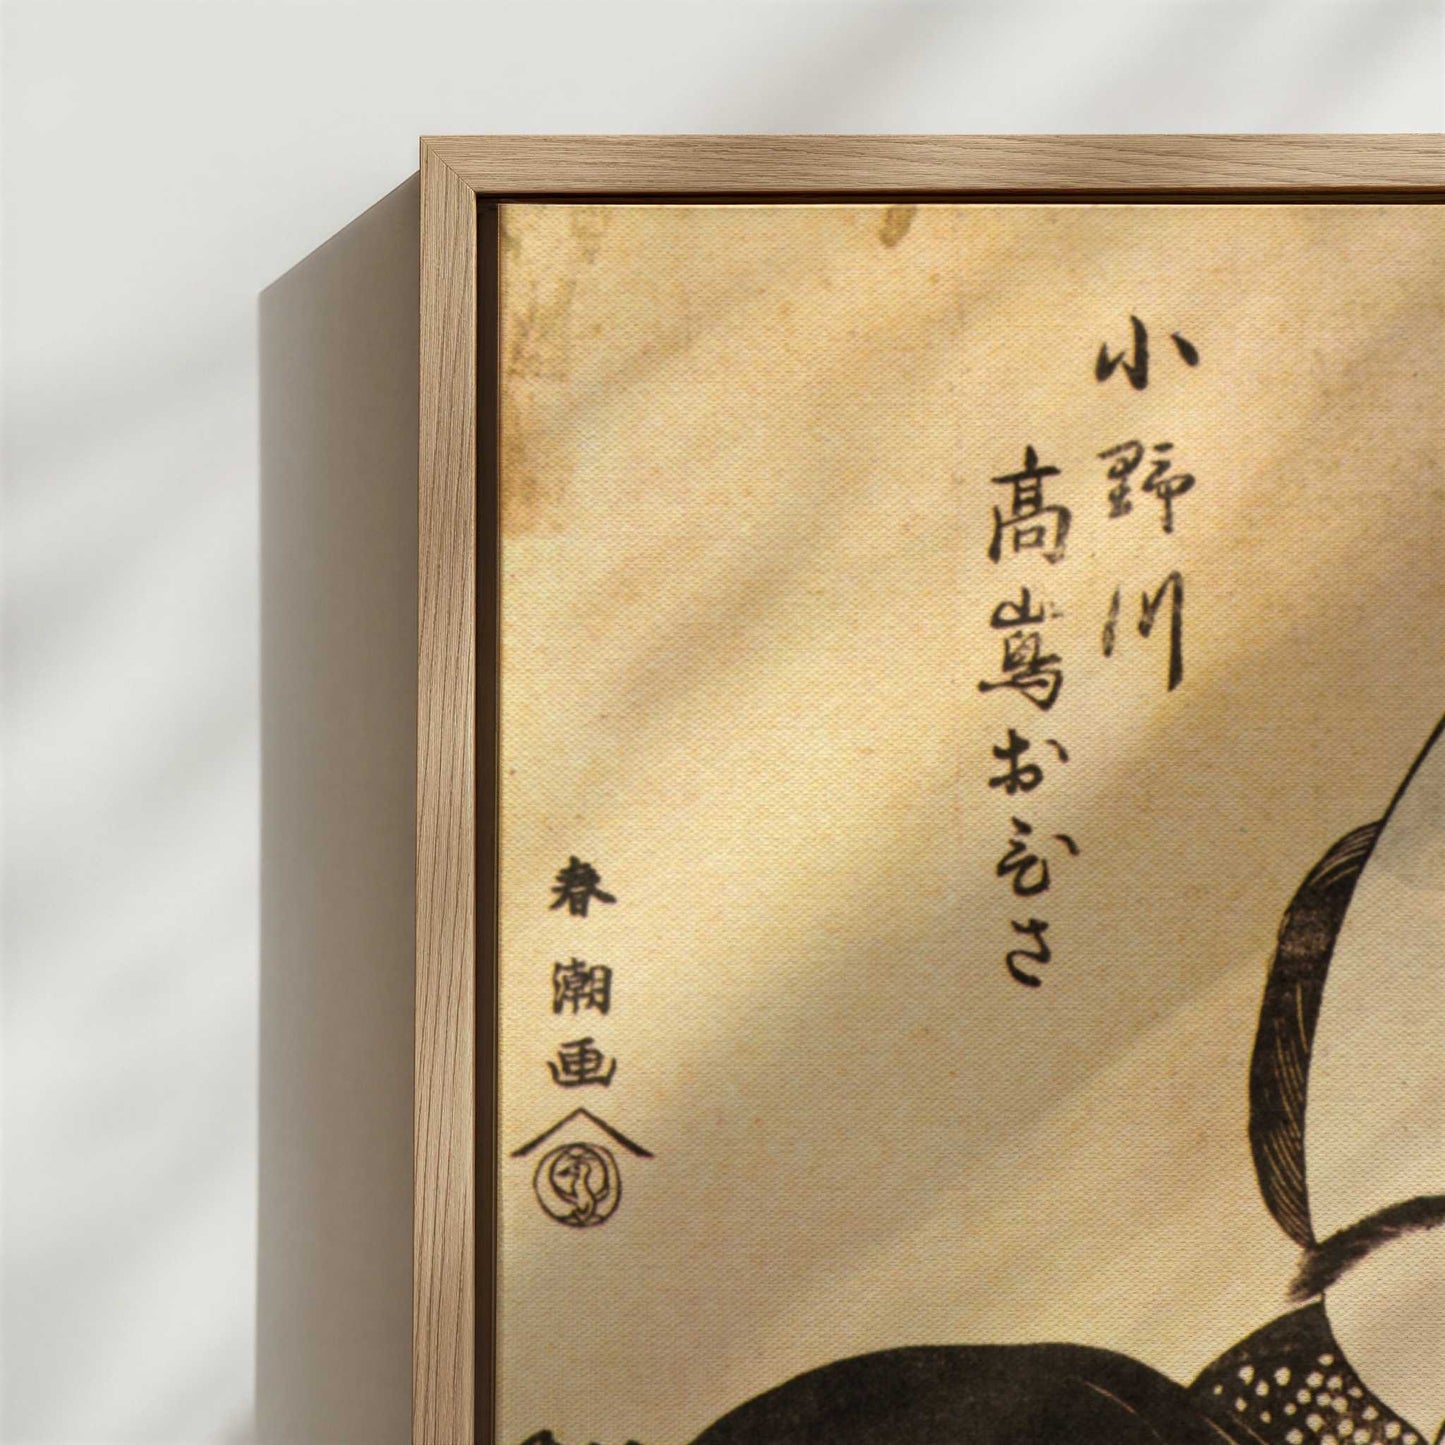 小野川
高嶌おひさ
春潮画